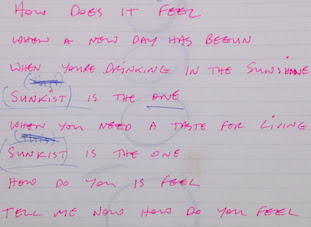 HOW DOES IT FEEL
WHEN A NEW DAY HAS BEGUN
WHEN YOU'RE DRINKING IN THE SUNSHINE
SUNKIST IS THE ONE
WHEN YOU NEED A TASTE FOR LIVING
SUNKIST IS THE ONE
HOW DO YOU IS FEEL
TELL ME NOW HOW DO YOU FEEL